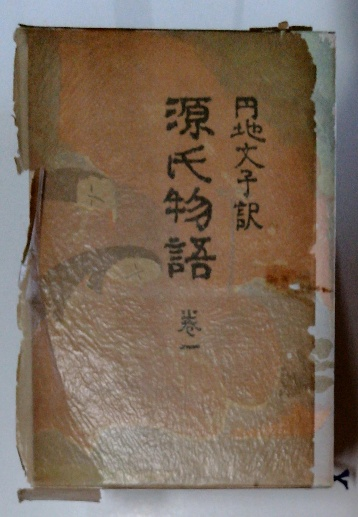 円地文子訳
源氏物語
巻一